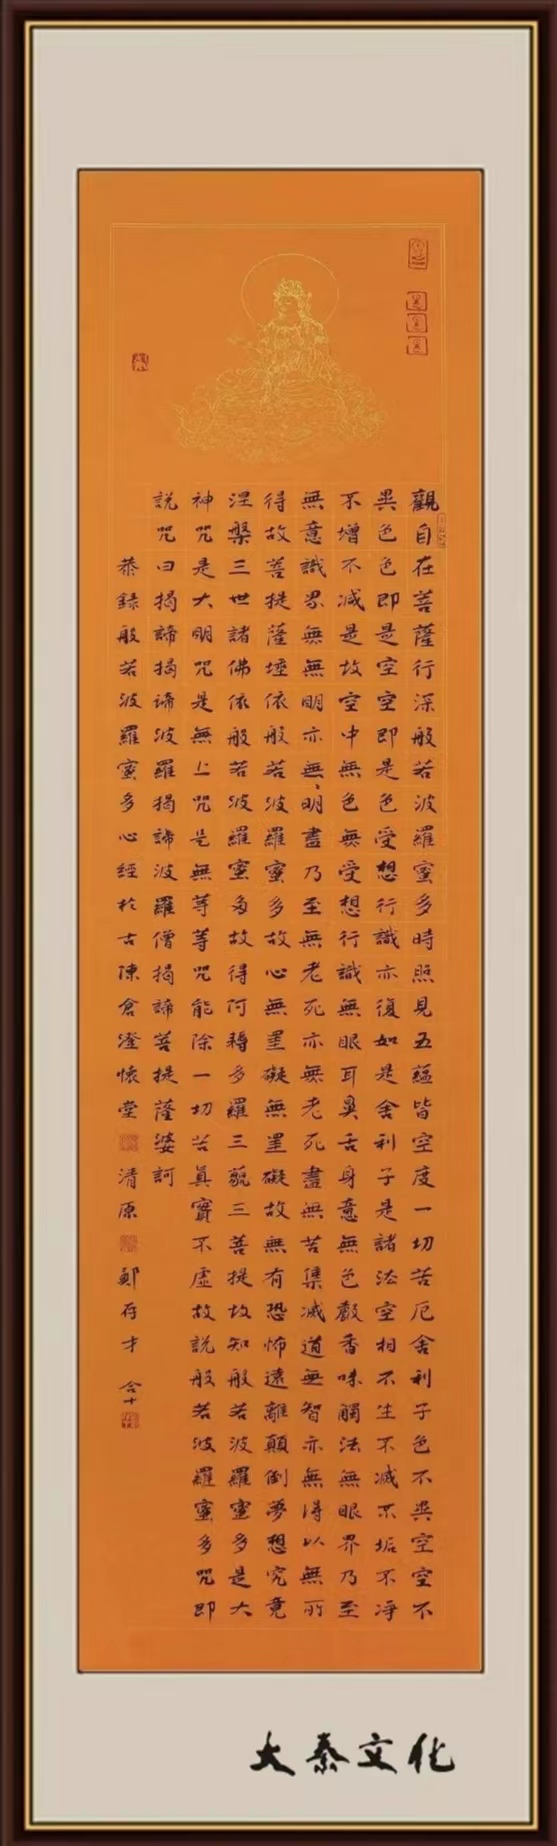 觀自在菩薩行深般若波羅蜜多時照見五蘊皆空度一切苦厄舍利子色不異空空不
異色色即是空空即是色受想行識亦復如是舍利子是諸法空相不生不滅不垢不淨
不增不減是故空中無色無受想行識無眼耳鼻舌身意無色聲香味觸法無眼界乃至
無意識界無無明亦無明盡乃至無老死亦無老死盡無苦集滅道無智亦無得以無所
得故菩提薩埵依般若波羅蜜多故心無罣礙無罣礙故無有恐怖遠離顛倒夢想究竟
涅槃三世諸佛依般若波羅蜜多故得阿耨多羅三藐三菩提故知般若波羅蜜多是大
神咒是大明咒是無上咒是無等等咒能除一切苦真實不虛故說般若波羅蜜多咒即
說咒曰揭諦揭諦波羅揭諦波羅僧揭諦菩提薩婆訶
恭錄般若波羅蜜多心經於古陳倉澄懷堂 清原 鄭存才 合十
大秦文化